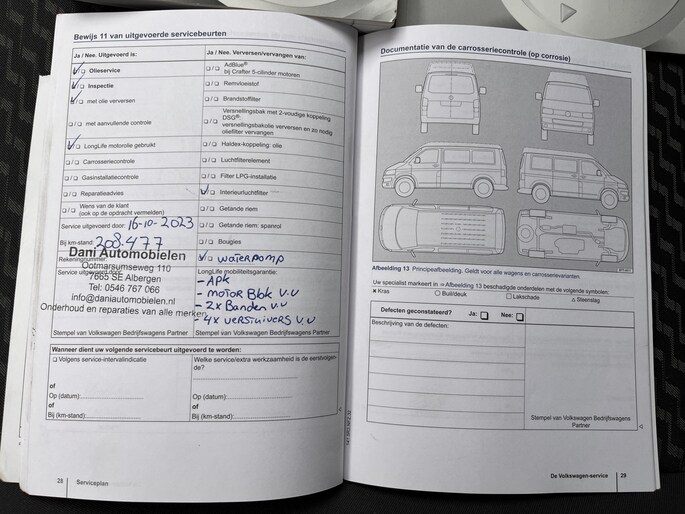 Bewijs 11 van uitgevoerde servicebeurten
Ja / Nee. Uitgevoerd is:
☑/❏ Olieservice
☑/❏ Inspectie
☑/❏ met olie verversen
❏/❏ met aanvullende controle
☑/❏ LongLife motorolie gebruikt
❏/❏ Carrosseriecontrole
❏/❏ Gasinstallatiecontrole
❏/❏ Reparatieadvies
❏/❏ Wens van de klant
(ook op de opdracht vermelden)
Service uitgevoerd door: 16-10-2023
Bij km-stand: 208.477
Rekeningnummer:
Service uitgevoerd door:
Dani Automobielen
Ootmarsumseweg 110
7665 SE Albergen
Tel: 0546 767 066
info@daniautomobielen.nl
Onderhoud en reparaties van alle merken
Stempel van Volkswagen Bedrijfswagens Partner
Ja / Nee. Verversen/vervangen van:
❏/❏ AdBlue®
bij Crafter 5-cilinder motoren
❏/❏ Remvloeistof
❏/❏ Brandstoffilter
❏/❏ Versnellingsbak met 2-voudige koppeling
DSG®:
versnellingsbakolie verversen en zo nodig
oliefilter vervangen
❏/❏ Haldex-koppeling: olie
❏/❏ Luchtfilterelement
❏/❏ Filter LPG-installatie
☑/❏ Interieurluchtfilter
❏/❏ Getande riem
❏/❏ Getande riem: spanrol
❏/❏ Bougies
☑/❏ waterpomp
LongLife mobiliteitsgarantie:
- APK
- MOTOR Blok V.V
- 2x Banden V.V
- 4x VERSTUIVERS V.V
Stempel van Volkswagen Bedrijfswagens Partner
Wanneer dient uw volgende servicebeurt uitgevoerd te worden:
❏ Volgens service-intervalindicatie
of
Op (datum):
of
Bij (km-stand):
Welke service/extra werkzaamheid is de eerstvolgen-
de?
of
Op (datum):
of
Bij (km-stand):
28 Serviceplan
Documentatie van de carrosseriecontrole (op corrosie)
Afbeelding 13 Principeafbeelding. Geldt voor alle wagens en carrosserievarianten.
Uw specialist markeert in ⇒ Afbeelding 13 beschadigde onderdelen met de volgende symbolen:
× Kras
○ Buil/deuk
□ Lakschade
△ Steenslag
Defecten geconstateerd? Ja: ❏ Nee: ❏
Beschrijving van de defecten:
Stempel van Volkswagen Bedrijfswagens
Partner
De Volkswagen-service 29